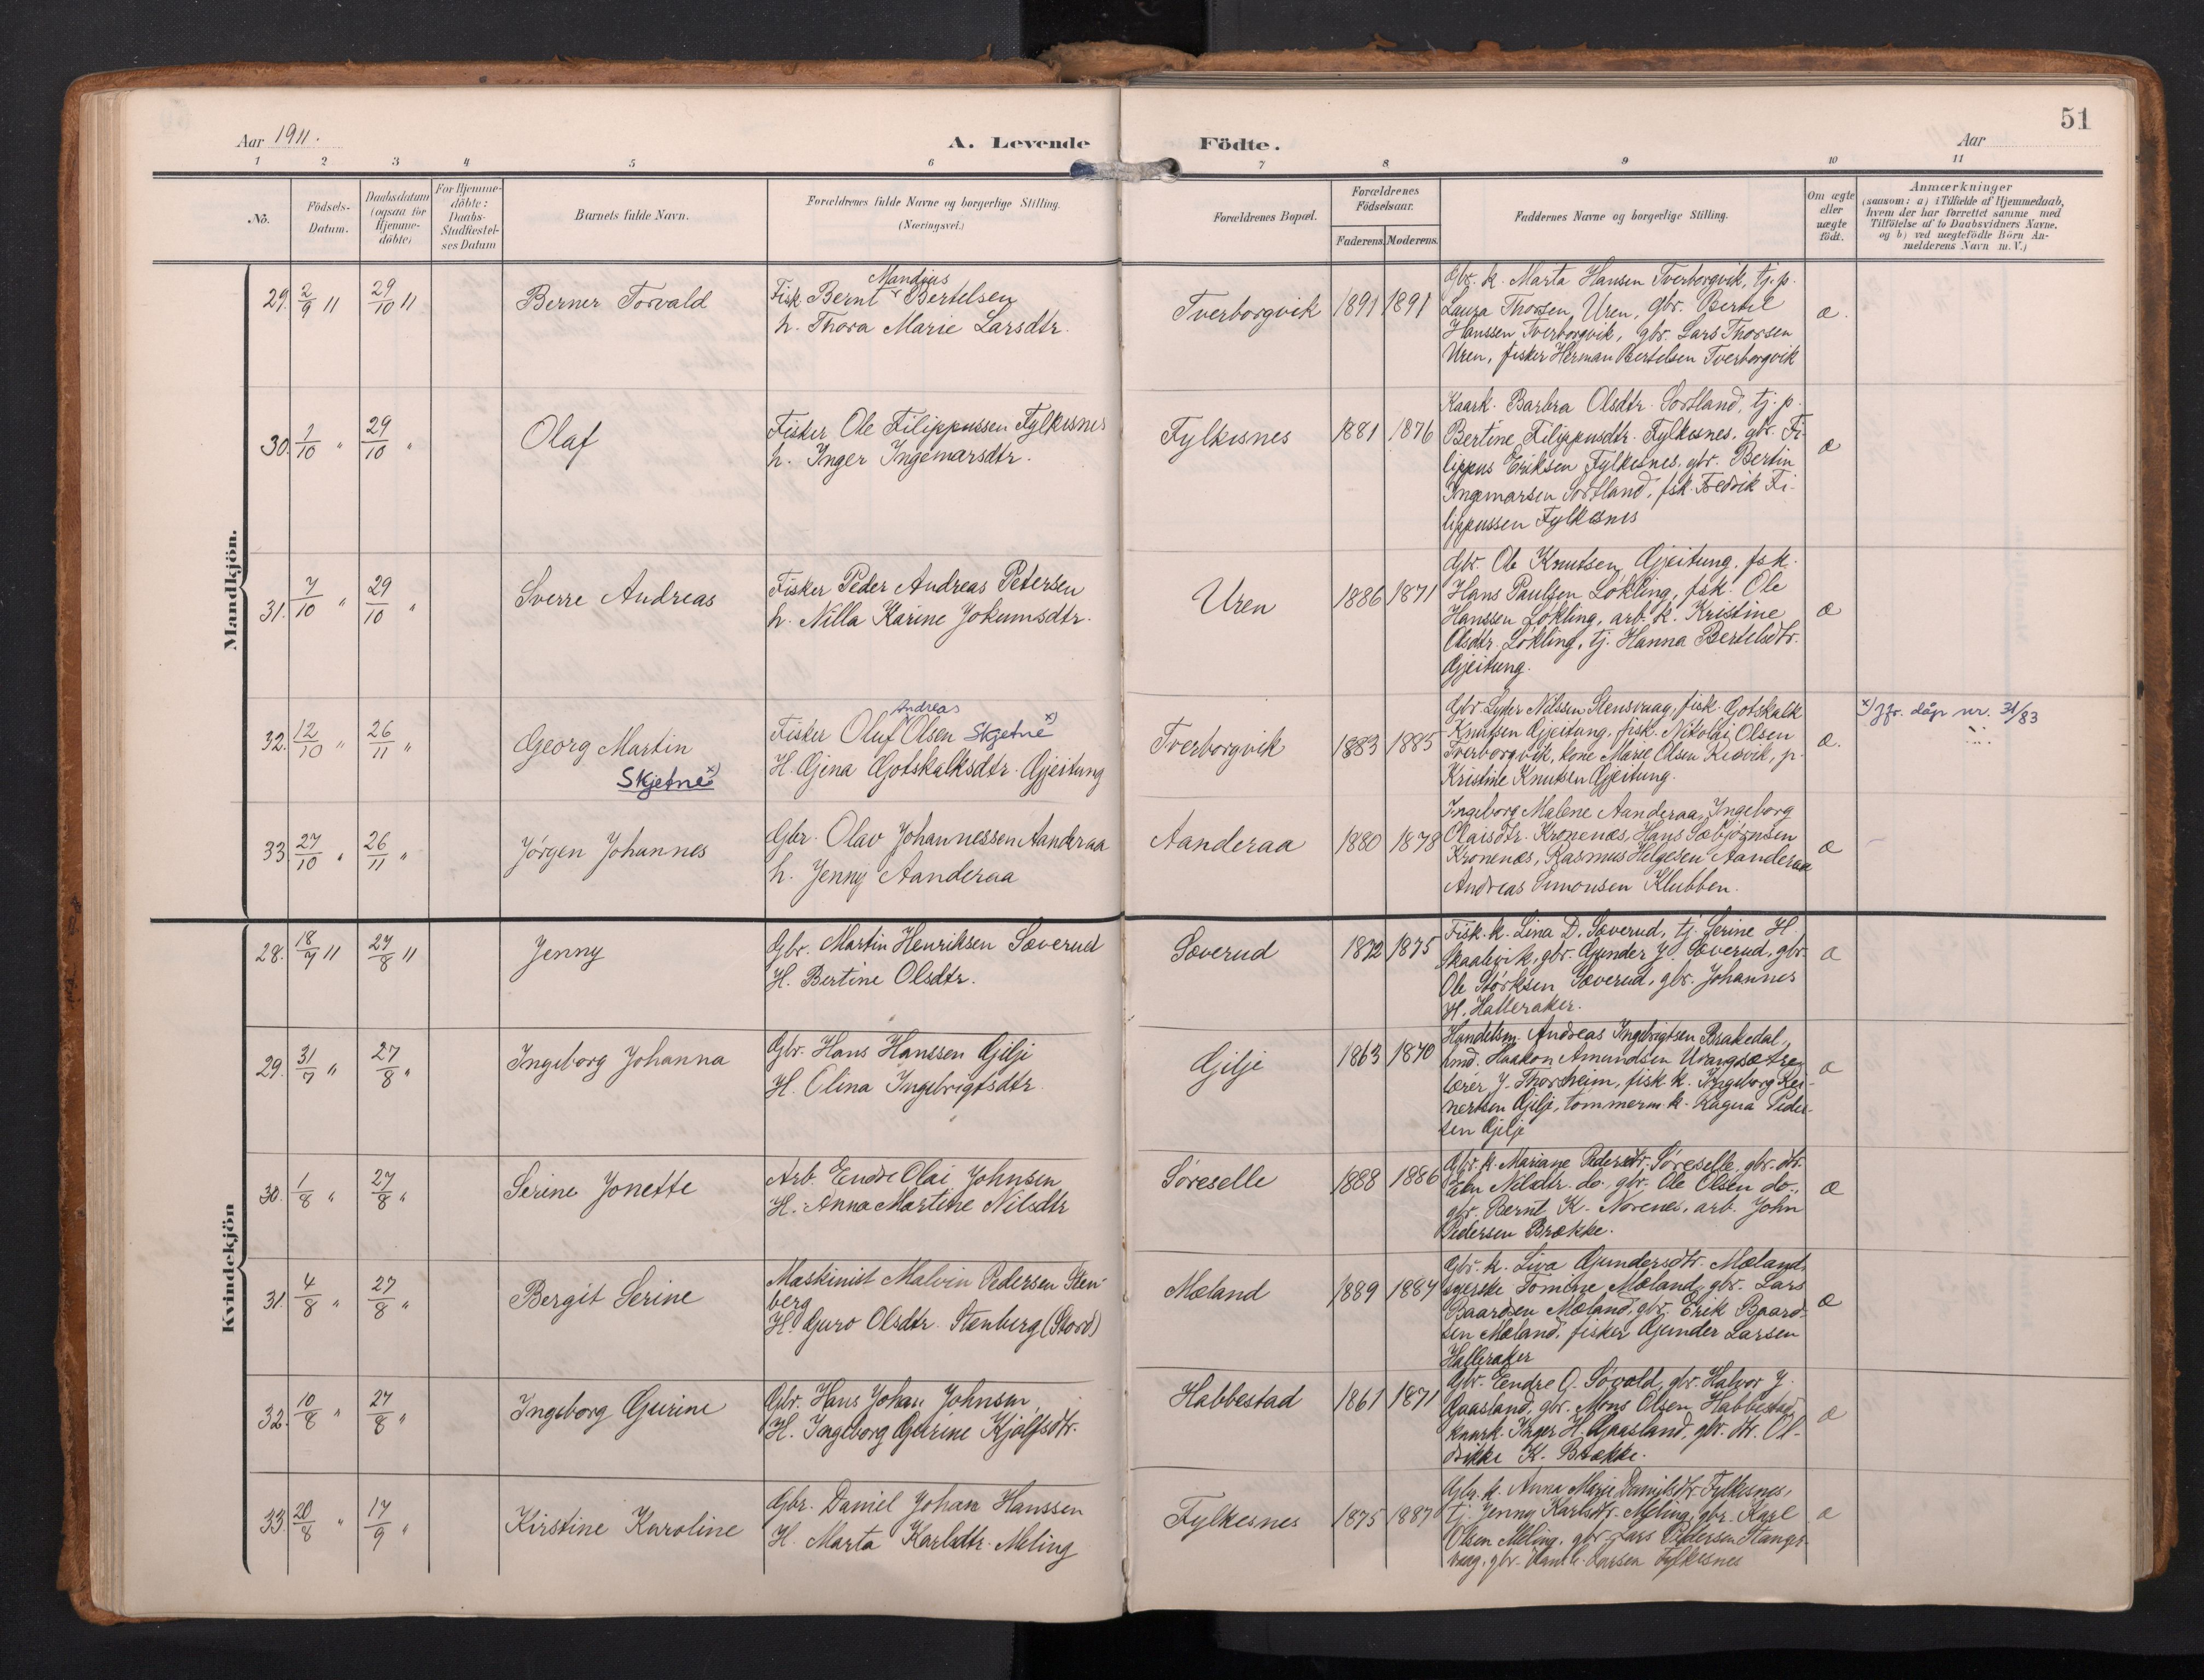 51
Aar 1911.
A. Levende Födte.
Aar
1 2 3 4 5 6 7 8 9 10 11
No.
Födsels-
Datum.
Daabsdatum
(ogsaa för
Hjemme-
döbte)
For Hjemme-
döbte:
Daabs-
Stadfæstel-
ses Datum
Barnets fulde Navn.
Forældrenes fulde Navne og borgerlige Stilling.
(Næringsvei.)
Forældrenes Bopæl.
Forældrenes
Födselsaar.
Faderens. Moderens.
Faddernes Navne og borgerlige Stilling.
Om ægte
eller
uægte
födt.
Anmærkninger
(saasom: a) i Tilfælde af Hjemmedaab,
hvem der har forrettet samme med
Tilföielse af to Daabsvidners Navne.
og b) ved uægtefödte Börn An-
melderens Navn m. V.)
Mandkjön.
29. 2/9 11 29/10 11
Berner Torvald
Mandius
Fisk. Bernt Bertelsen
h. Thora Marie Larsdtr.
Tverborgvik 1891 1891
Gbr. k. Marta Hansen Tverborgvik, tj. p.
Laura Thorsen Uren, gbr. Bertel
Hanssen Tverborgvik, gbr. Lars Thorsen
Uren, fisker Herman Bertelsen Tverborgvik
æ.
30. 1/10 " 29/10 "
Olaf
Fisker Ole Filippussen Fylkesnes
h. Inger Ingemarsdtr.
Fylkesnes 1881 1876
Kaark. Barbra Olsdtr. Sortland, tj. p.
Bertine Filippusdtr. Fylkesnes, gbr. Fi-
lippus Eriksen Fylkesnes, gbr. Bertin
Ingemarsen Sortland, fsk. Fredrik Fi-
lippussen Fylkesnes
æ
31. 7/10 " 29/10 "
Sverre Andreas
Fisker Peder Andreas Petersen
h. Nilla Karine Jokumsdtr.
Uren 1886 1871
Gbr. Ole Knutsen Gjeitung, fsk.
Hans Paulsen Løkling, fsk. Ole
Hanssen Løkling, arb. k. Kristine
Olsdtr. Løkling, tj. Hanna Bertelsdtr.
Gjeitung.
æ
32. 12/10 " 26/11 "
Georg Martin
Skjetne x)
Andreas
Fisker Oluf Olsen Skjetne x)
H. Gjena Gotskalksdtr. Gjeitung
Tverborgvik 1883 1885
Gbr. Lyder Nilssen Stensvaag, fisk. Gotskalk
Knutsen Gjeitung, fisk. Nikolai Olsen
Tverborgvik, kone Marie Olsen, p.
Kristine Knutsen Gjeitung.
æ.
x) Jfr. dåp nr. 31/83
33. 27/10 " 26/11 "
Jørgen Johannes
Gbr. Olav Johannessen Aanderaa
h. Jenny Aanderaa
Aanderaa 1880 1878
Ingeborg Malene Aanderaa, Ingeborg
Olaisdtr. Kronenæs, Hans Sæbjørnsen
Kronenæs, Rasmus Helgesen Aanderaa
Andreas Simonsen Klubben.
æ
Kvindekjön
28. 18/7 11 27/8 11
Jenny
Gbr. Martin Henriksen Sæverud
H. Bertine Olsdtr.
Sæverud 1872 1875
Fisk. k. Lina D. Sæverud, tj. Serine H.
Skaalevik, gbr. Gunder J. Sæverud, gbr.
Ole Størksen Sæverud, gbr. Johannes
H. Halleraker.
æ
29. 31/7 " 27/8 "
Ingeborg Johanna
Gbr. Hans Hanssen Gilje
H. Olina Ingebrigtsdtr.
Gilje 1863 1870
Handelsm. Andreas Ingebrigtsen Brakedal,
lmd. Haakon Amundsen Urangsæter,
lærer J. Thorsheim, fisk. k. Ingeborg Rei-
nertsen Gilje, tømmerm. k. Ragna Peder-
sen Gilje
æ
30. 1/8 " 27/8 "
Serine Jonette
Arb. Endre Olai Johnsen
H. Anna Martine Nilsdtr
Søreselle 1888 1886
Gbr. k. Mariane Pedersdtr. Søreselle, gbr. dtr.
Nilsdtr. do., gbr. Ole Olsen do.,
gbr. Bernt K. Norenes, arb. John
Pedersen Brække.
æ
31. 4/8 " 27/8 "
Bergit Serine
Maskinist Malvin Pedersen Sten-
berg
H. Guro Olsdtr. Stenberg (Stord)
Mæland 1889 1887
Gbr. k. Liva Gundersdtr. Mæland,
syerske Tomine Mæland, gbr. Lars
Baardsen Mæland, gbr. Erik Baard-
sen Mæland, fisker Gunder Larsen
Halleraker
æ
32. 10/8 " 27/8 "
Ingeborg Gurine
Gbr. Hans Johan Johnsen
H. Ingeborg Gurine Kjølfsdtr.
Habbestad 1861 1871
Gbr. Endre G. Søvold, gbr. Halvor J.
Gaasland, gbr. Mons Olsen Habbestad,
kaark. Inger H. Gaasland, gbr. dtr. Ol-
rikke K. Brække.
æ
33. 20/8 " 17/9 "
Kirstine Karoline
Gbr. Daniel Johan Hanssen
H. Marta Karlsdtr. Meling
Fylkesnes 1875 1887
Gbr. k. Anna Marie Danielsdtr. Fylkesnes,
tj. Jenny Karlsdtr. Meling, gbr. Karl
Olsen Meling, gbr. Lars Pedersen Stangs-
vaag, gbr. Larsen Fylkesnes
æ